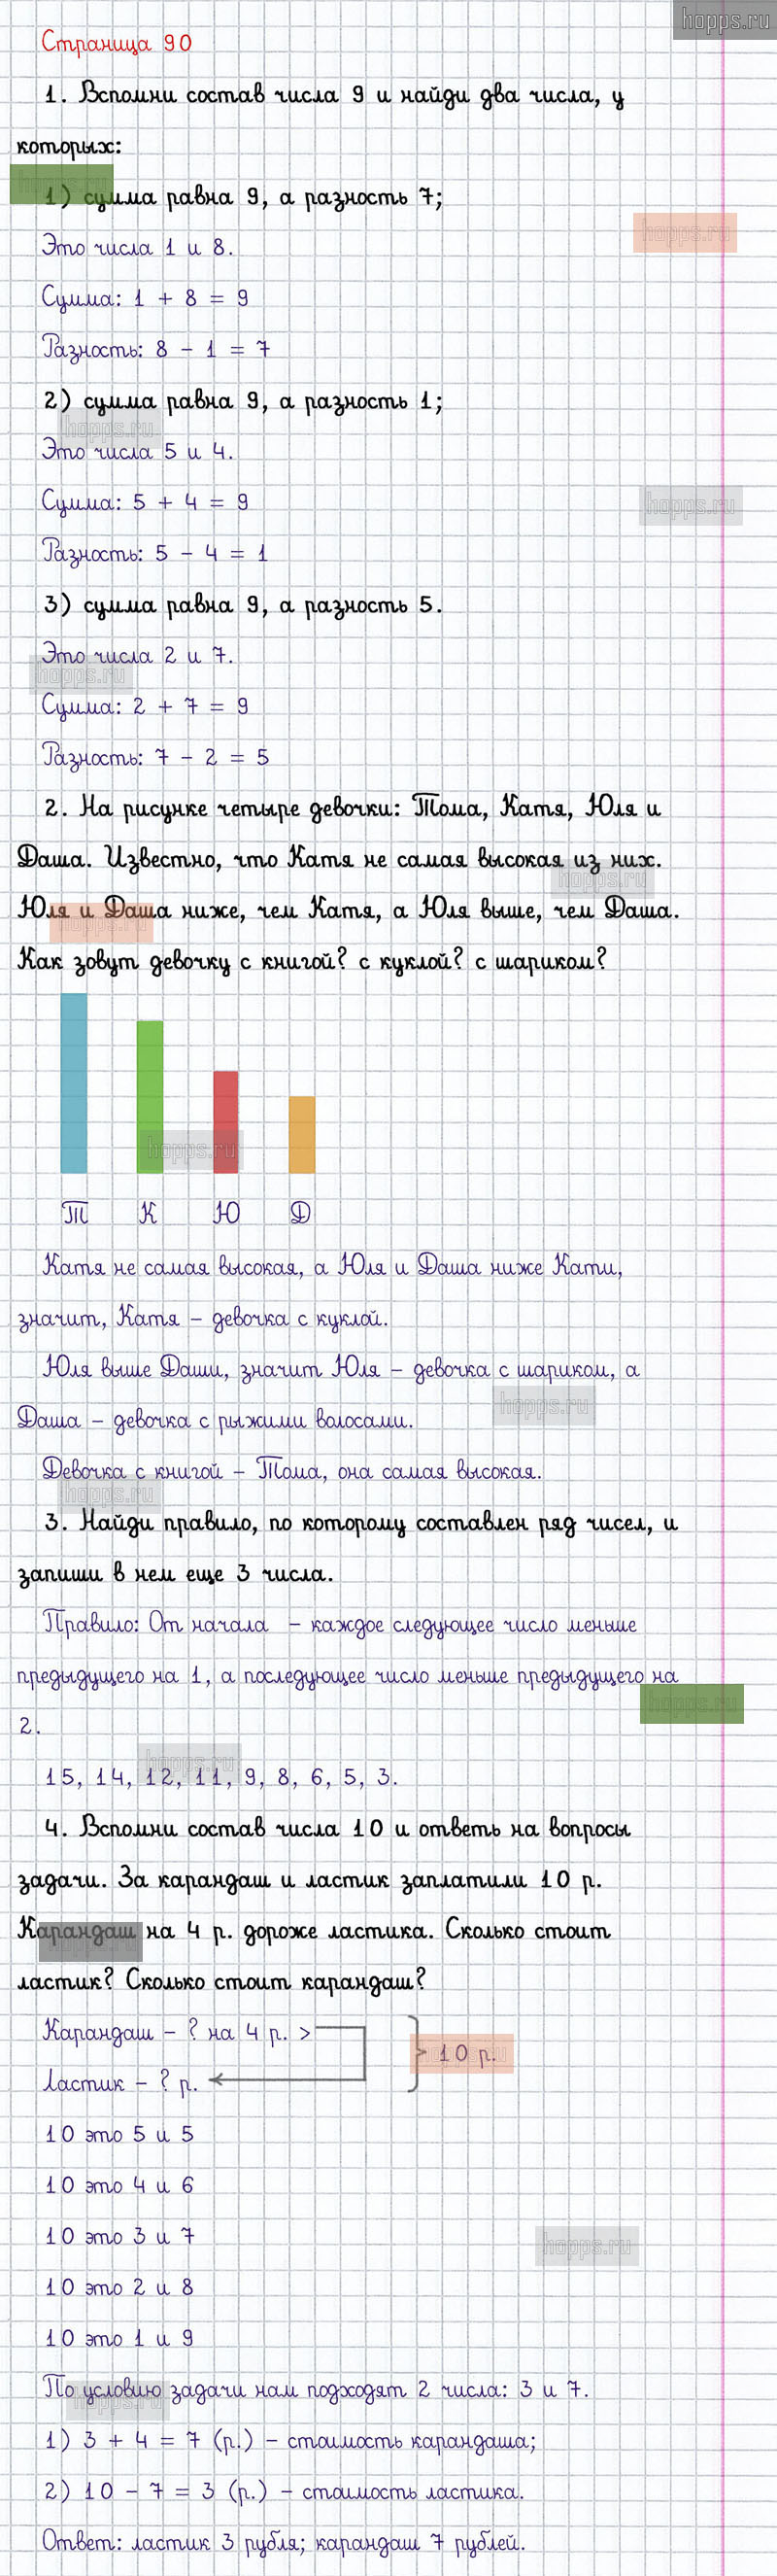 hopps.ru
Страница 90
1. Вспомни состав числа 9 и найди два числа, у
которых:
1) сумма равна 9, а разность 7;
hopps.ru
Это числа 1 и 8.
Сумма: 1 + 8 = 9
Разность: 8 - 1 = 7
2) сумма равна 9, а разность 1;
hopps.ru
Это числа 5 и 4.
Сумма: 5 + 4 = 9
hopps.ru
Разность: 5 - 4 = 1
3) сумма равна 9, а разность 5.
Это числа 2 и 7.
hopps.ru
Сумма: 2 + 7 = 9
Разность: 7 - 2 = 5
2. На рисунке четыре девочки: Тома, Катя, Юля и
Даша. Известно, что Катя не самая высокая из них.
hopps.ru
Юля и Даша ниже, чем Катя, а Юля выше, чем Даша.
hopps.ru
Как зовут девочку с книгой? с куклой? с шариком?
hopps.ru
Т К Ю Д
Катя не самая высокая, а Юля и Даша ниже Кати,
значит, Катя - девочка с куклой.
Юля выше Даши, значит Юля - девочка с шариком, а
hopps.ru
Даша - девочка с рыжими волосами.
Девочка с книгой - Тома, она самая высокая.
hopps.ru
3. Найди правило, по которому составлен ряд чисел, и
запиши в нем еще 3 числа.
Правило: От начала - каждое следующее число меньше
предыдущего на 1, а последующее число меньше предыдущего на
hopps.ru
2.
hopps.ru
15, 14, 12, 11, 9, 8, 6, 5, 3.
4. Вспомни состав числа 10 и ответь на вопросы
задачи. За карандаш и ластик заплатили 10 р.
Карандаш на 4 р. дороже ластика. Сколько стоит
ластик? Сколько стоит карандаш?
Карандаш - ? на 4 р. >
10 р.
Ластик - ? р.
10 это 5 и 5
10 это 4 и 6
10 это 3 и 7
hopps.ru
10 это 2 и 8
10 это 1 и 9
По условию задачи нам подходят 2 числа: 3 и 7.
hopps.ru
1) 3 + 4 = 7 (р.) - стоимость карандаша;
2) 10 - 7 = 3 (р.) - стоимость ластика.
Ответ: ластик 3 рубля; карандаш 7 рублей.